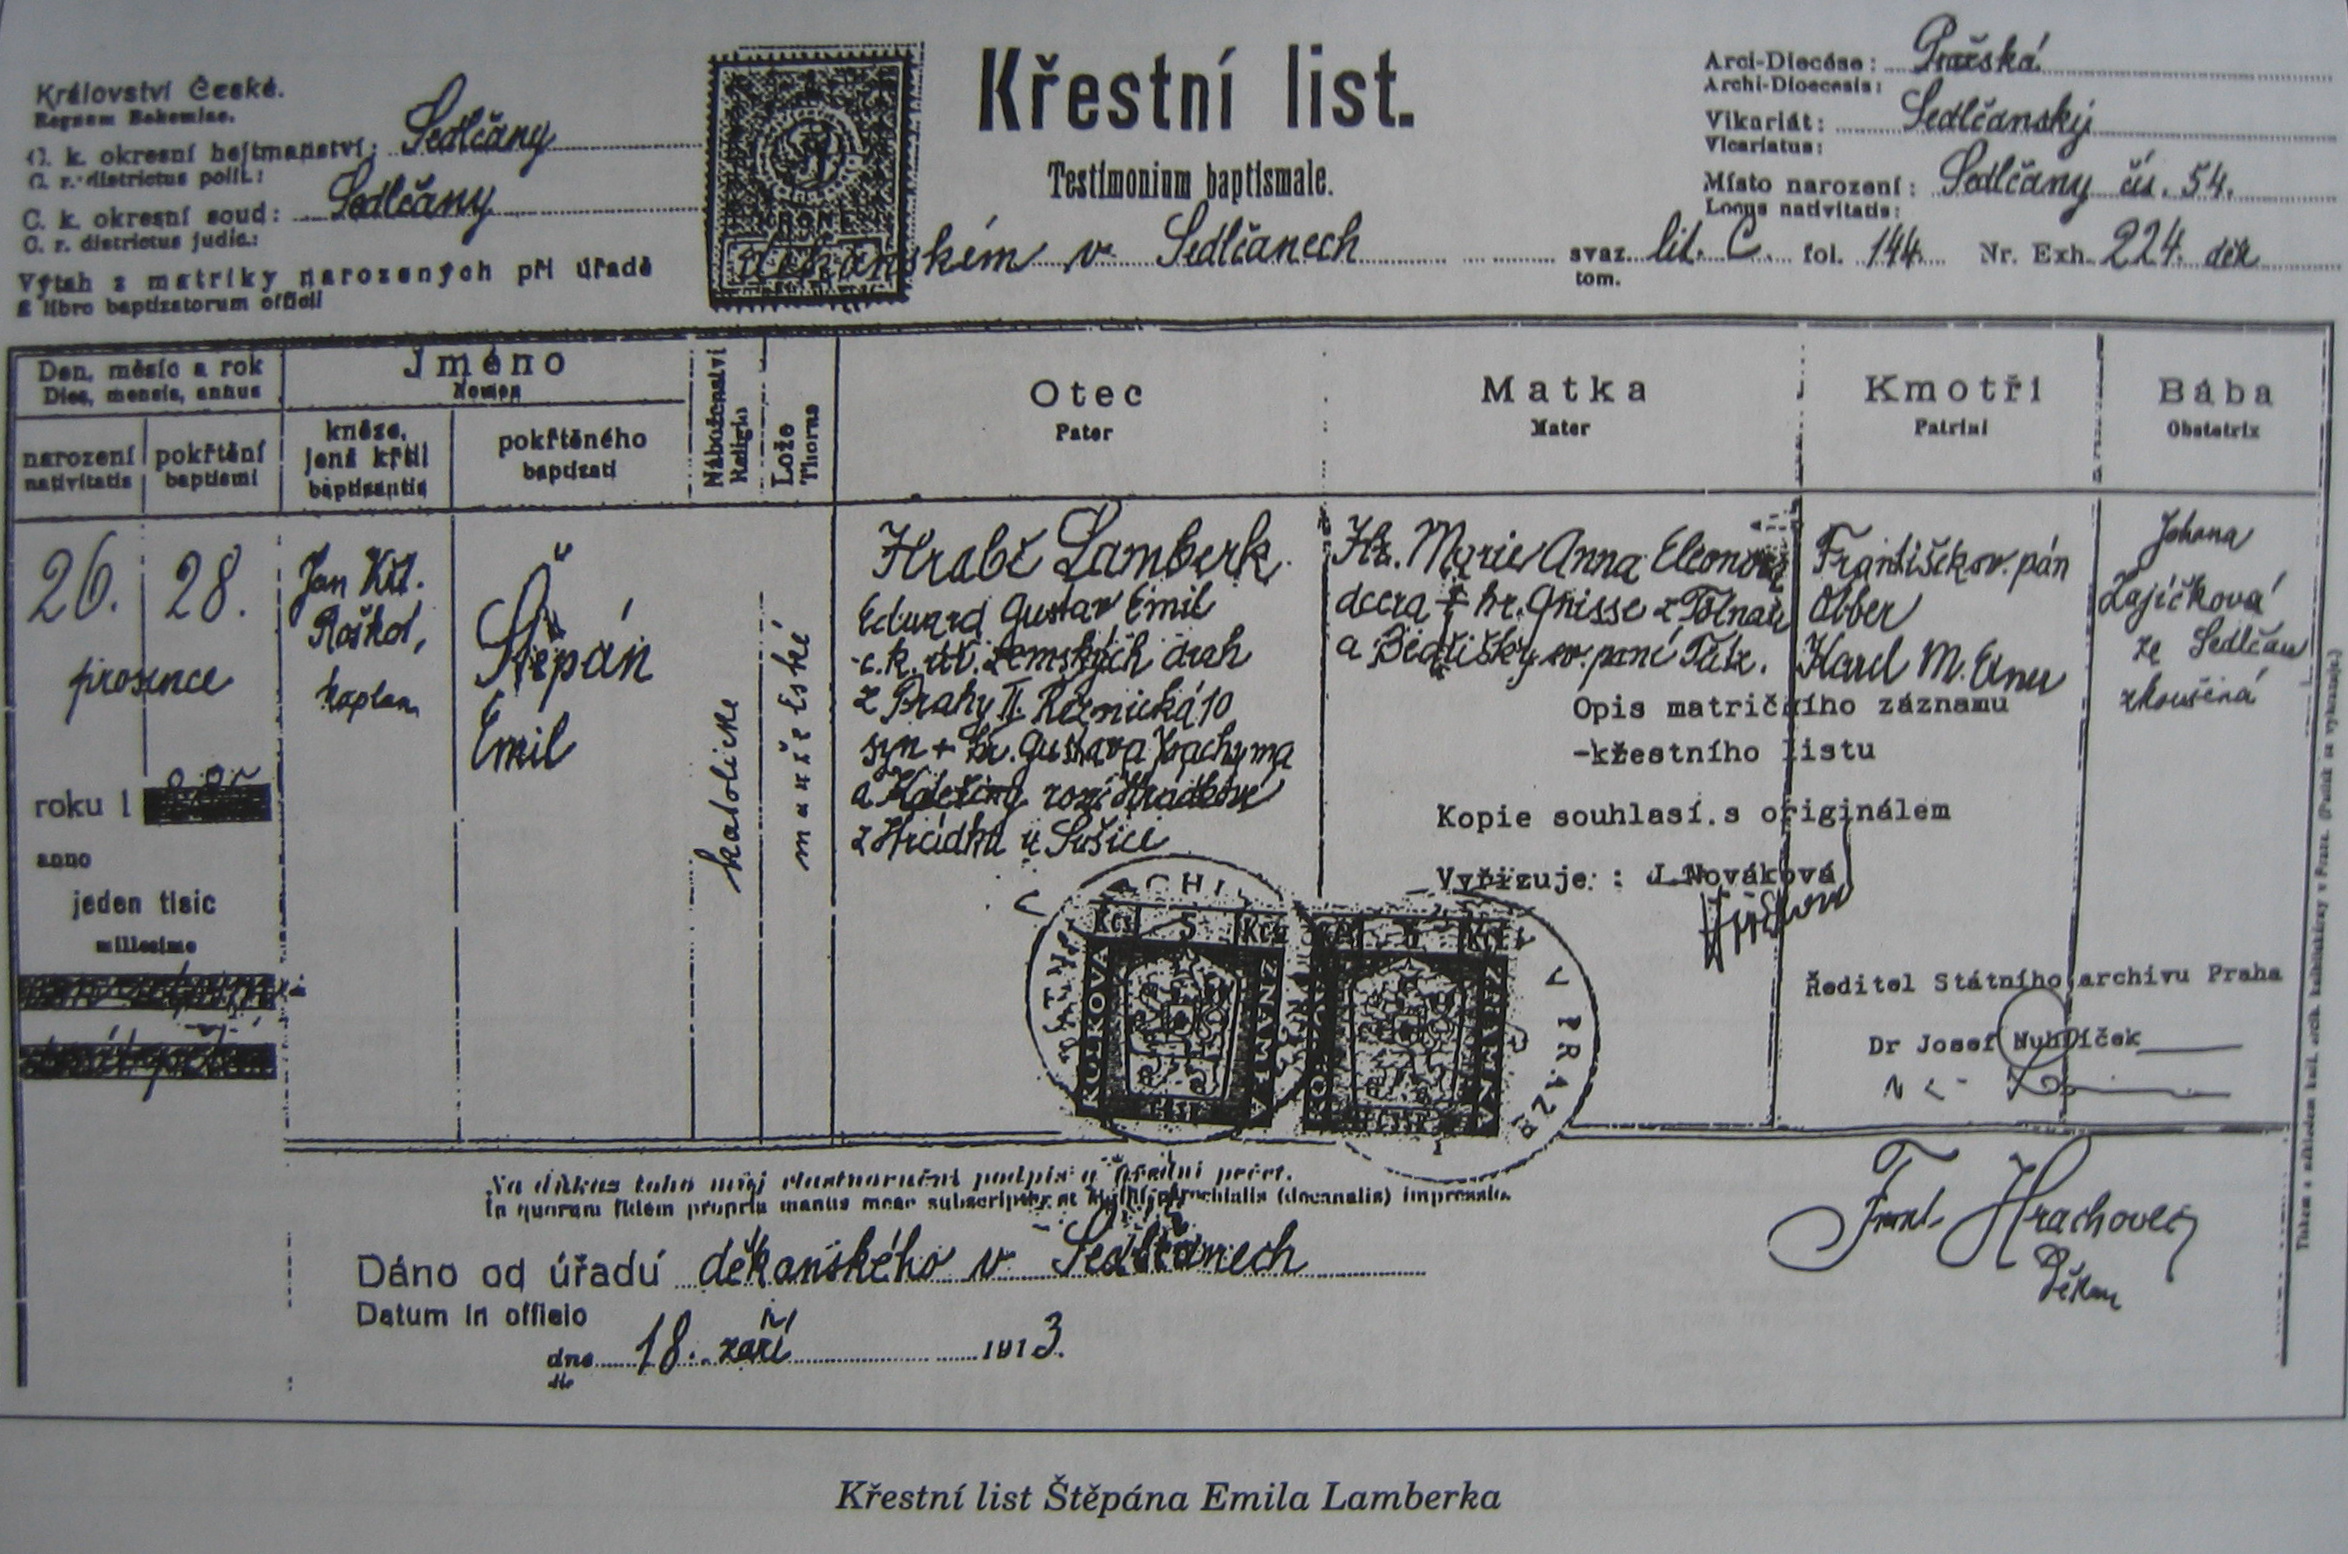 Království České.
Regnum Bohemiae.
C. k. okresní hejtmanství: Sedlčany
C. r. districtus polit.:
C. k. okresní soud: Sedlčany
C. r. districtus judic.:
Výtah z matriky narozených při úřadě děkanském v Sedlčanech svaz. lit. C. fol. 144. Nr. Exh. 224. děk
E libro baptizatorum officii tom.
KRONE
Křestní list.
Testimonium baptismale.
Arci-Diecése: Pražská
Archi-Dioecesis:
Vikariát: Sedlčanský
Vicariatus:
Místo narození: Sedlčany čís. 54.
Locus nativitatis:
Den, měsíc a rok
Dies, mensis, annus
narození
nativitatis
pokřtění
baptismi
Jméno
Nomen
kněze,
jenž křtil
baptisantis
pokřtěného
baptizati
Náboženství
Religio
Lože
Thorus
Otec
Pater
Matka
Mater
Kmotři
Patrini
Bába
Obstetrix
26. 28.
prosince
roku 1
anno
jeden tisíc
millesimo
Jan Kř.
Roškot,
kaplan
Štěpán
Emil
katolické
manželské
Hrabě Lamberk
Eduard Gustav Emil
c.k. zemských drah
z Prahy II. Řeznická 10
syn + hr. Gustava Jáchyma
a Kateřiny roz. Hrádkové
z Hrádku u Sušice
Hr. Marie Anna Eleonora
dcera + hr. z Tolnau
a sv. paní
František sv. pán
Karel M.
Johana
Zajíčková
ze Sedlčan
zkoušená
Opis matričního záznamu
-křestního listu
Kopie souhlasí s originálem
Vyřizuje : J.Nováková
Ředitel Státního archivu Praha
Dr Josef Nuhlíček
ARCHIV
V PRAZE
1
Kčs 5 Kčs
KOLKOVÁ ZNÁMKA
Kčs 5 Kčs
KOLKOVÁ ZNÁMKA
Na důkaz toho můj vlastnoruční podpis a úřední pečeť.
In quorum fidem propria manus meae subscriptio et sigilli parochialis (decanalis) impressio.
Dáno od úřadu děkanského v Sedlčanech
Datum in officio
dne 18. září 1913.
die
Frant. Hrachovec
Děkan
Křestní list Štěpána Emila Lamberka